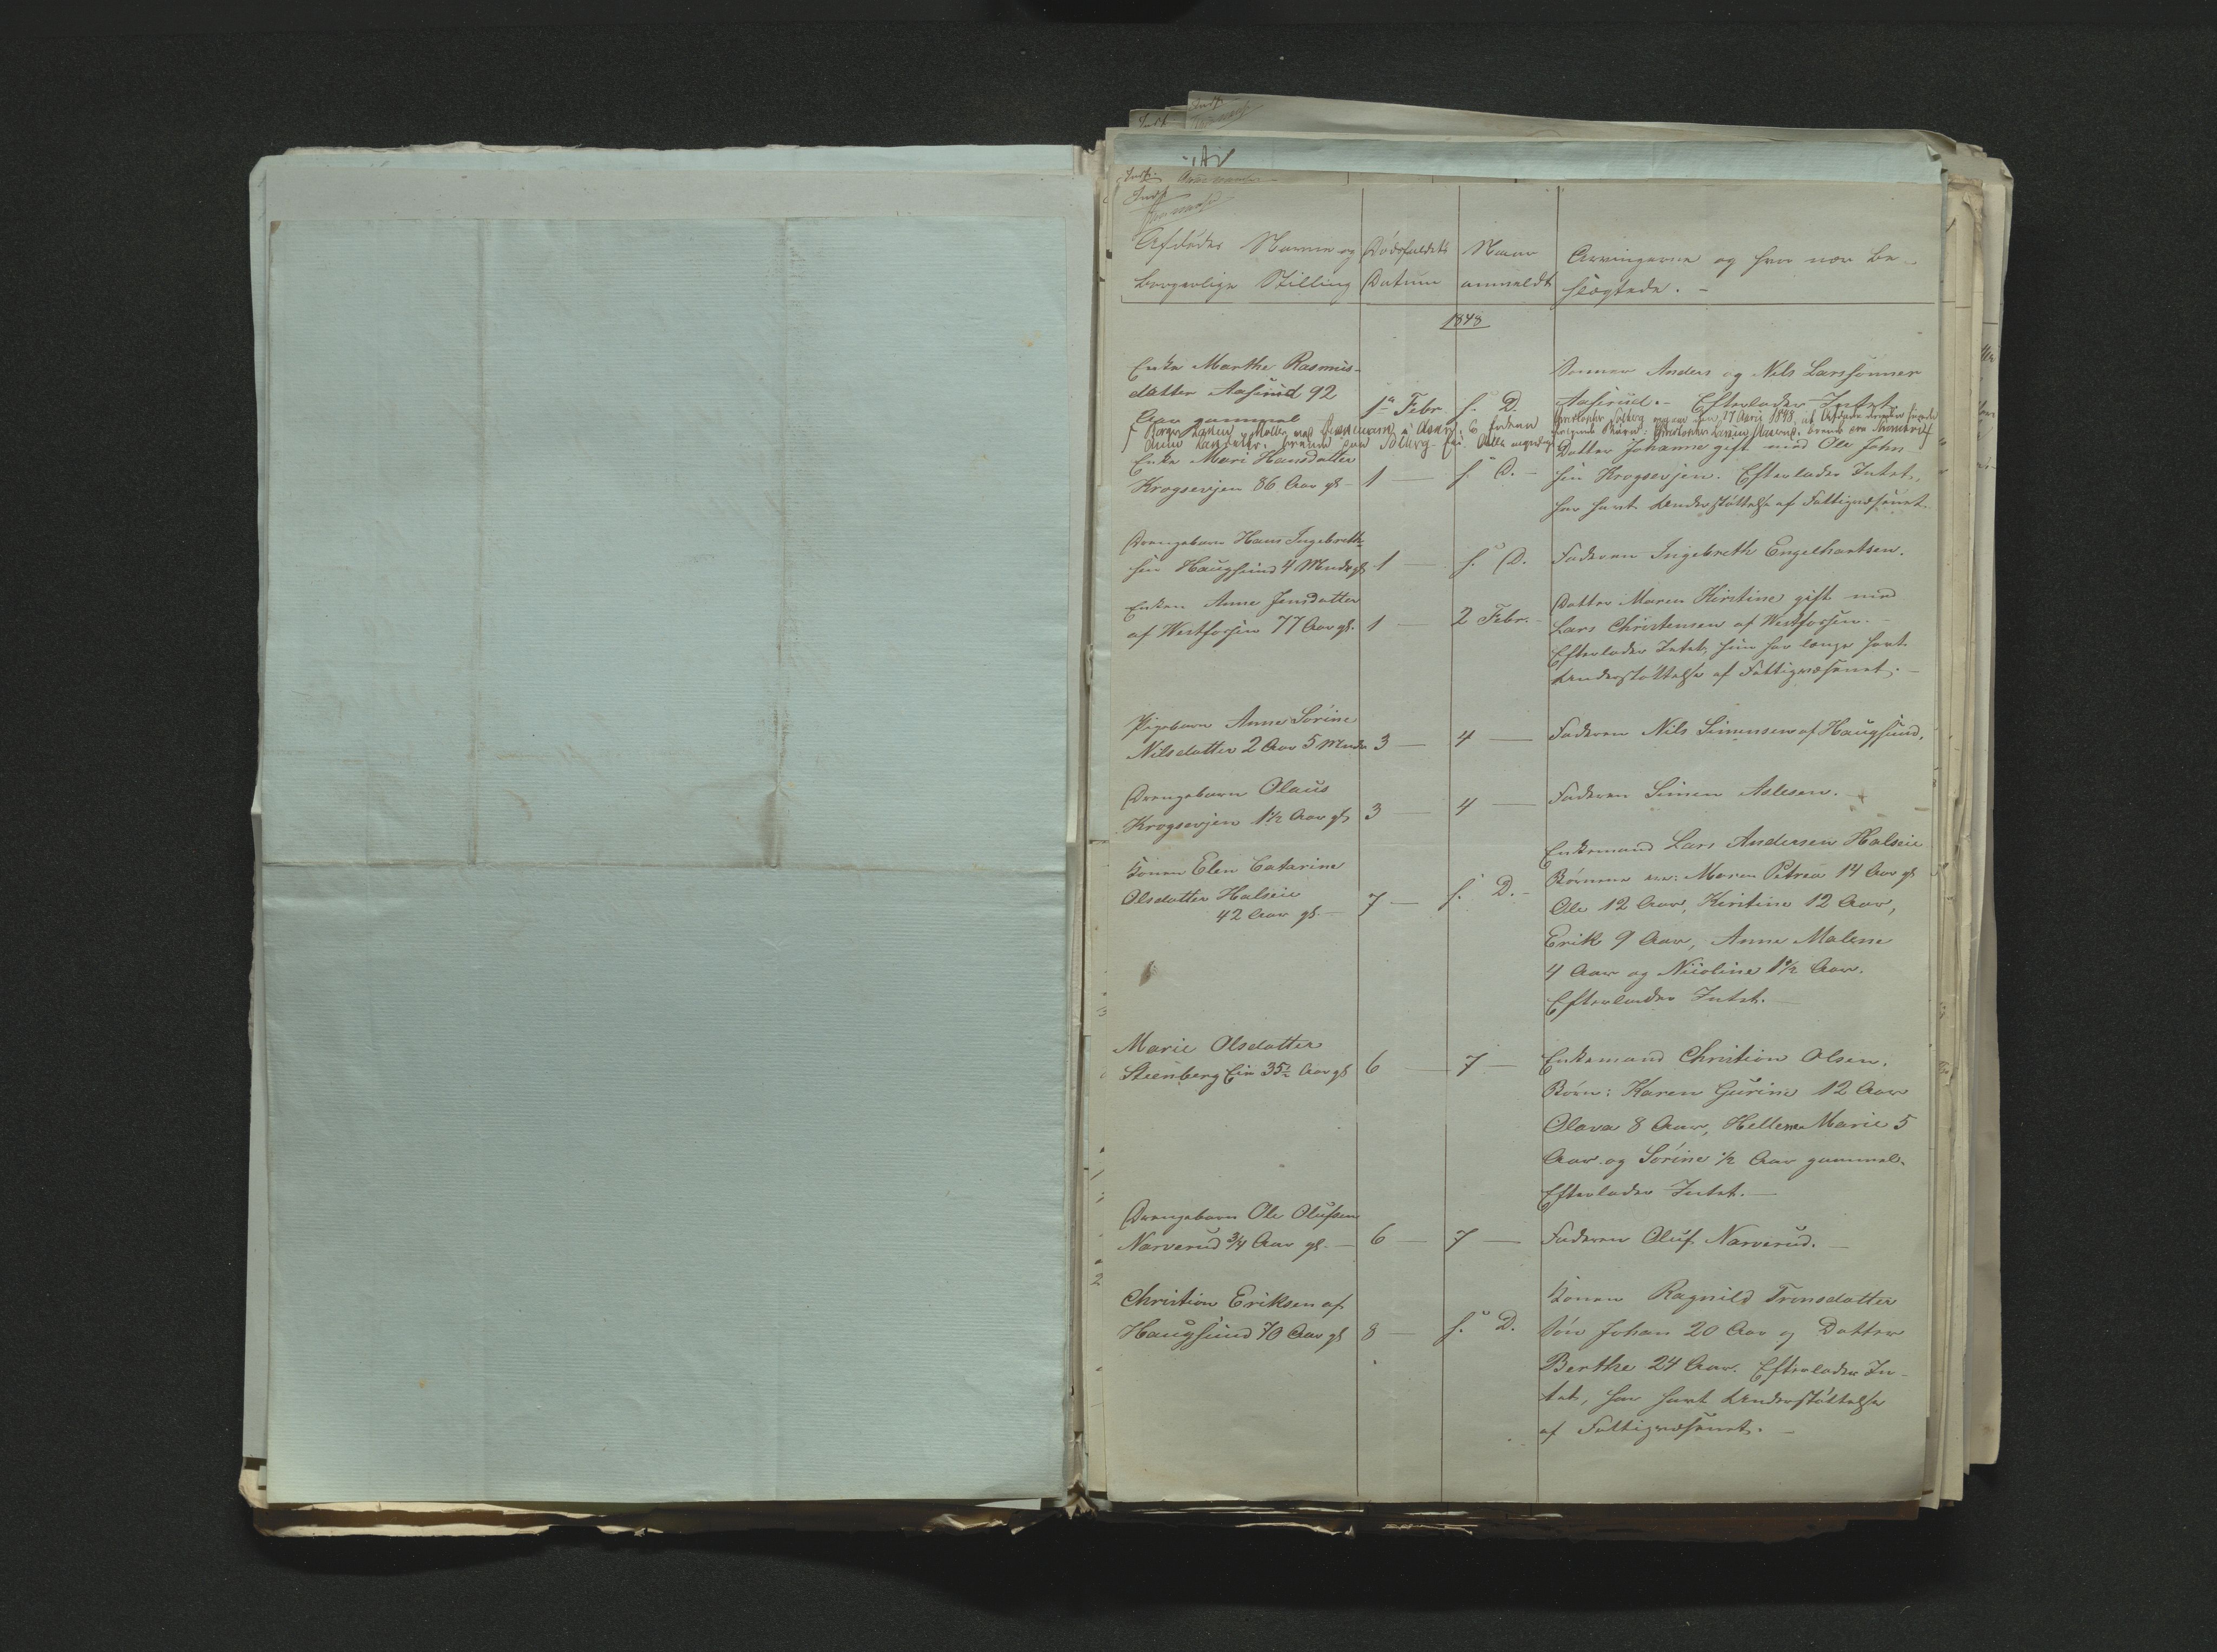 Afdødes Navne og borgerlige Stilling
Dødsfaldets Datum
Naar anmeldt
Arvingerne og hvor nær beslægtede. -
1848
Enke Marthe Rasmus-
datter Aaserud 92
Aar gammel
1ste Febr.
s. D.
Sønner Anders og Nils Larssønner
Aaserud. - Efterlader Intet.
Enke Mari Hansdatter
Krogsevjen 86 Aar gl. -
1 —
s. D. -
Datter Johanne gift med Ole John-
sen Krogsevjen. Efterlader Intet,
har havt Understøttelse af Fattigvæsenet.
Drengebarn Hans Ingebreth-
sen Haugsund 4 Mndr gl.
1 —
s. D.
Faderen Ingebreth Engelhartsen.
Enken Anne Jensdatter
af Westfossen 77 Aar gl.
1 —
2 Febr. -
Datter Maren Kirstine gift med
Lars Christensen af Westfossen. -
Efterlader Intet, hun har længe havt
Understøttelse af Fattigvæsenet. -
Pigebarn Anne Sørine
Nilsdatter 2 Aar 5 Mndr
3 —
4 —
Faderen Nils Simensen af Haugsund.
Drengebarn Olaus
Krogsevjen 1½ Aar gl.
3 —
4 —
Faderen Simen Aslesen.
Konen Elen Catarine
Olsdatter Halseie
42 Aar gl. -
7 —
s. D. -
Enkemand Lars Andersen Halseie
Børnene ere: Maren Petrea 14 Aar gl
Ole 12 Aar, Kirstine 12 Aar,
Erik 9 Aar, Anne Malene
4 Aar og Nicoline 1½ Aar.
Efterlader Intet. —
Marie Olsdatter
Steenberg Eie 35½ Aar gl
6 —
7 —
Enkemand Christian Olsen.
Børn: Karen Gurine 12 Aar
Olava 8 Aar, Hellene Marie 5
Aar og Sørine ½ Aar gammel.
Efterlader Intet. —
Drengebarn Ole Olufsen
Narverud ¾ Aar gl. —
6 —
7 —
Faderen Oluf Narverud. —
Christian Eriksen af
Haugsund 70 Aar gl
8 —
s. D.
Konen Ragnild Tronsdatter
Søn Johan 20 Aar og Datter
Berthe 24 Aar. Efterlader In-
tet, har havt Understøttelse
af Fattigvæsenet. -